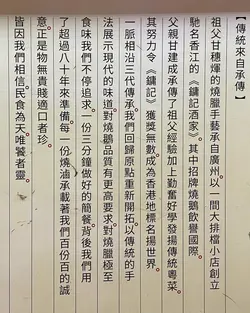 【傳統來自承傳】
祖父甘穗煇的燒臘手藝承自廣州。以一間大排檔小店創立
馳名香江的《鏞記酒家》。其中招牌燒鵝飲譽國際。
父親甘建成承傳了祖父經驗加上勤奮好學發揚傳統粵菜。
其努力令《鏞記》獲獎無數。成為香港地標名揚世界。
一脈相沿三代傳承。我們回歸原點重新開拓。以傳統的手
法展示現代的味道。對燒鵝品質有更高要求。對燒臘極至
食味我們不停追求。一份二分鐘做好的簡餐。背後我們用
了超過八十年來準備。每一份燒滷承載著我們百份百的誠
意。正是物無貴賤適口者珍。
皆因我們相信民食為天唯饕者靈。